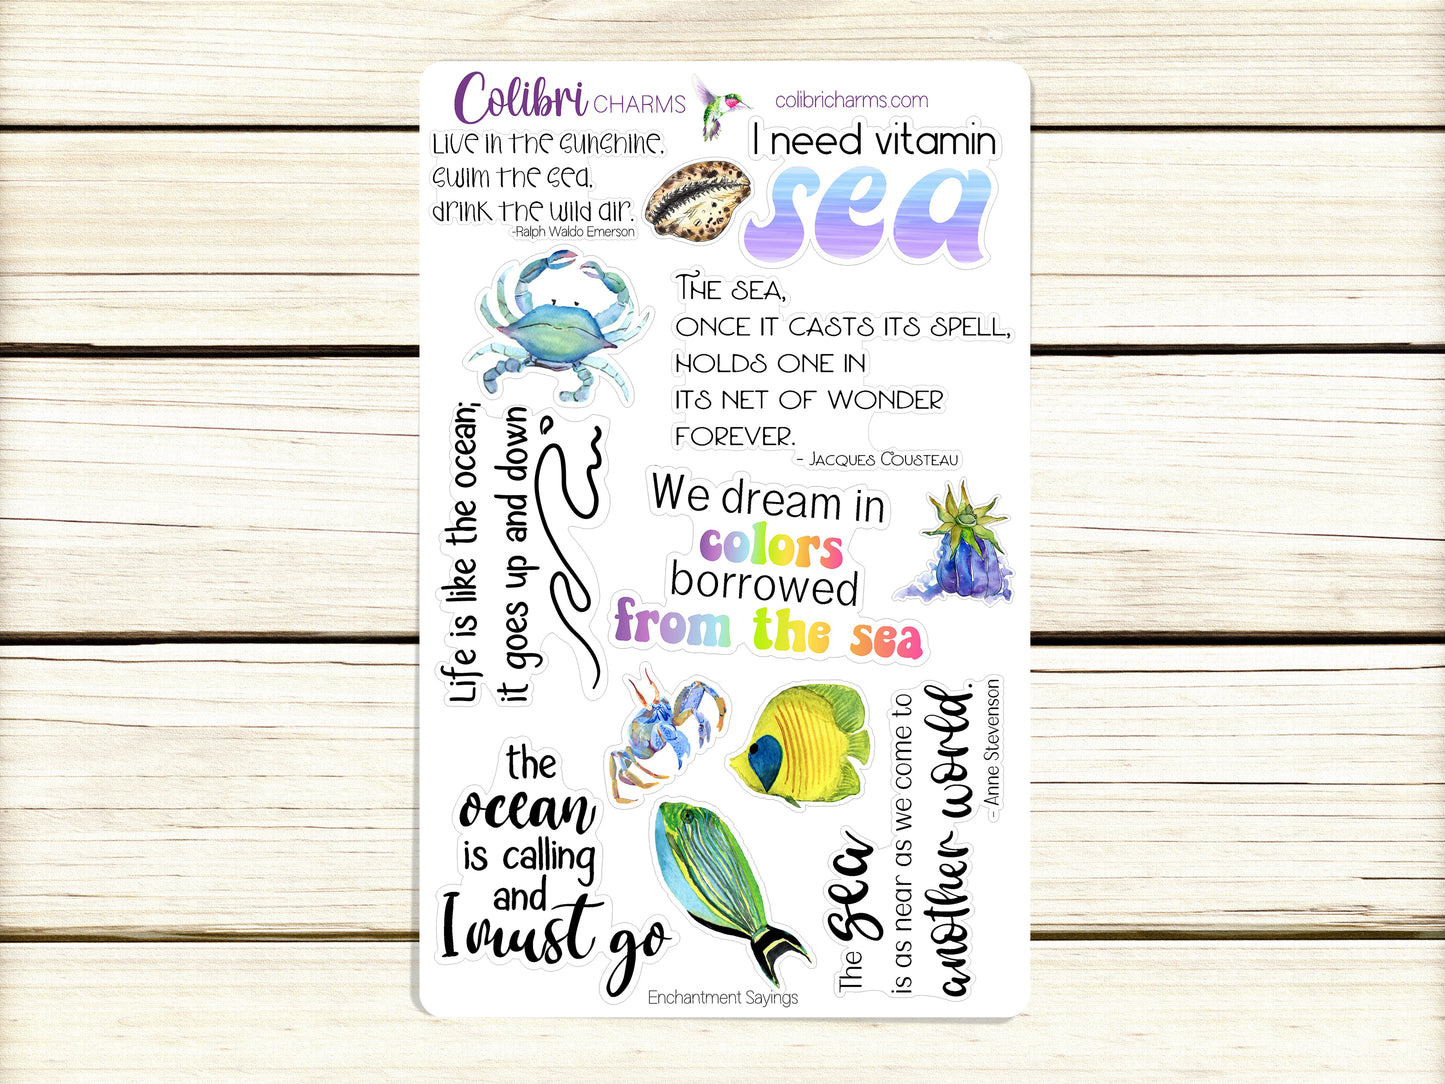 Colibri CHARMS
colibricharms.com
Live in the sunshine,
swim the sea,
drink the wild air.
-Ralph Waldo Emerson
I need vitamin
sea
The sea,
once it casts its spell,
holds one in
its net of wonder
forever.
- Jacques Cousteau
Life is like the ocean;
it goes up and down
We dream in
colors
borrowed
from the sea
the
ocean
is calling
and
I must go
The sea
is as near as we come to
another world.
- Anne Stevenson
Enchantment Sayings